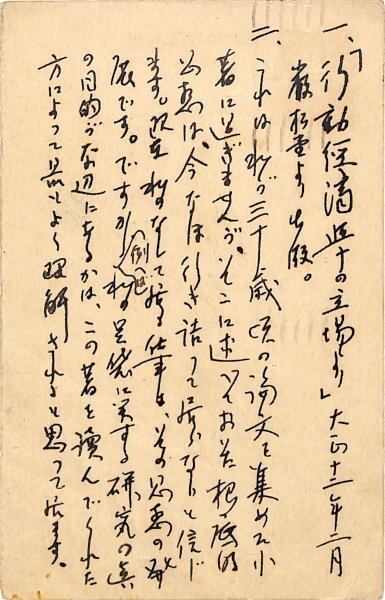 一、「行動経済学の立場より」大正十二年二月
巌松堂より出版。
二、これは私が三十歳頃の論文を集めた小
著に過ぎませんが、そこに述べておいた根底的
思想は、今なほ行き詰って居ないと信じ
ます。現在私のなして居る仕事は、その思想の発
展です。ですから(例へば)私の足袋に関する研究の真
の目的が那辺にあるかは、この著を読んでくれた
方によって最もよく理解されると思って居ます。